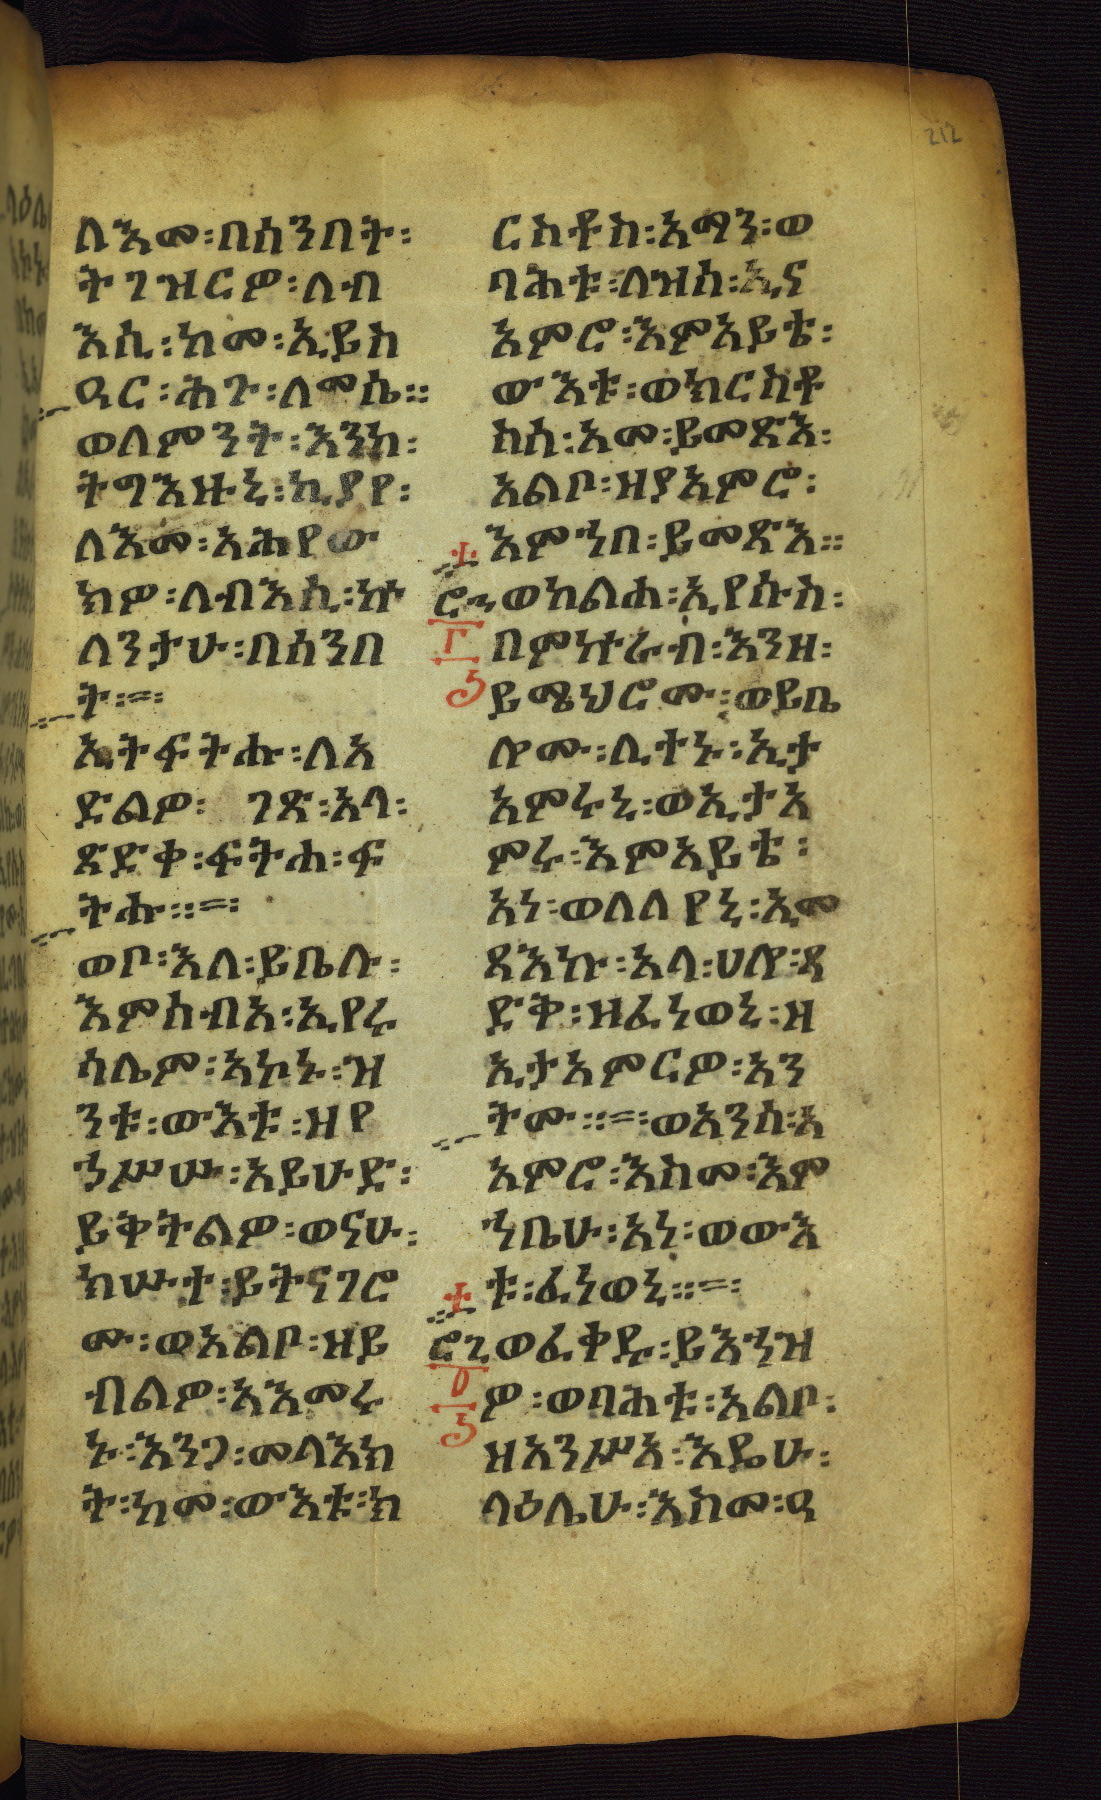 212
ለእመ፡በሰንበት፡
ትገዝርዎ፡ለብ
እሲ፡ከመ፡ኢይስ
ዓር፡ሕጉ፡ለሙሴ።
ወለምንት፡እንከ፡
ትግእዙኒ፡ኪያየ፡
ለእመ፡አሕየው
ክዎ፡ለብእሲ፡ኵ
ለንታሁ፡በሰንበ
ት፡=፡
ኢትፍትሑ፡ለአ
ድልዎ፡ ገጽ፡አላ፡
ጽድቀ፡ፍትሐ፡ፍ
ትሑ።=፡
ወቦ፡እለ፡ይቤሉ፡
እምሰብአ፡ኢየሩ
ሳሌም፡አኮኑ፡ዝ
ንቱ፡ውእቱ፡ዘየ
ኀሥሡ፡አይሁድ፡
ይቅትልዎ፡ወናሁ፡
ክሡተ፡ይትናገሮ
ሙ፡ወአልቦ፡ዘይ
ብልዎ፡አእመሩ
ኑ፡እንጋ፡መላእክ
ት፡ከመ፡ውእቱ፡ክ
ርስቶስ፡አማን፡ወ
ባሕቱ፡ለዝሰ፡ኢና
አምሮ፡እምአይቴ፡
ውእቱ፡ወክርስቶ
ስሰ፡አመ፡ይመጽእ፡
አልቦ፡ዘያአምሮ፡
እምኀበ፡ይመጽእ።
ወከልሐ፡ኢየሱስ፡
በምኵራብ፡እንዘ፡
ይሜህሮሙ፡ወይቤ
ሎሙ፡ሊተኑ፡ኢታ
አምሩኒ፡ወኢታአ
ምሩ፡እምአይቴ፡
አነ፡ወለልየኒ፡ኢመ
ጻእኩ፡አላ፡ሀሎ፡ጻ
ድቅ፡ዘፈነወኒ፡ዘ
ኢታአምርዎ፡አን
ትሙ።=፡ወአንሰ፡አ
አምሮ፡እስመ፡እም
ኀቤሁ፡አነ፡ወውእ
ቱ፡ፈነወኒ።=፡
ወፈቀዱ፡ይእኀዝ
ዎ፡ወባሕቱ፡አልቦ፡
ዘአንሥአ፡እዴሁ፡
ላዕሌሁ፡እስመ፡ዓ